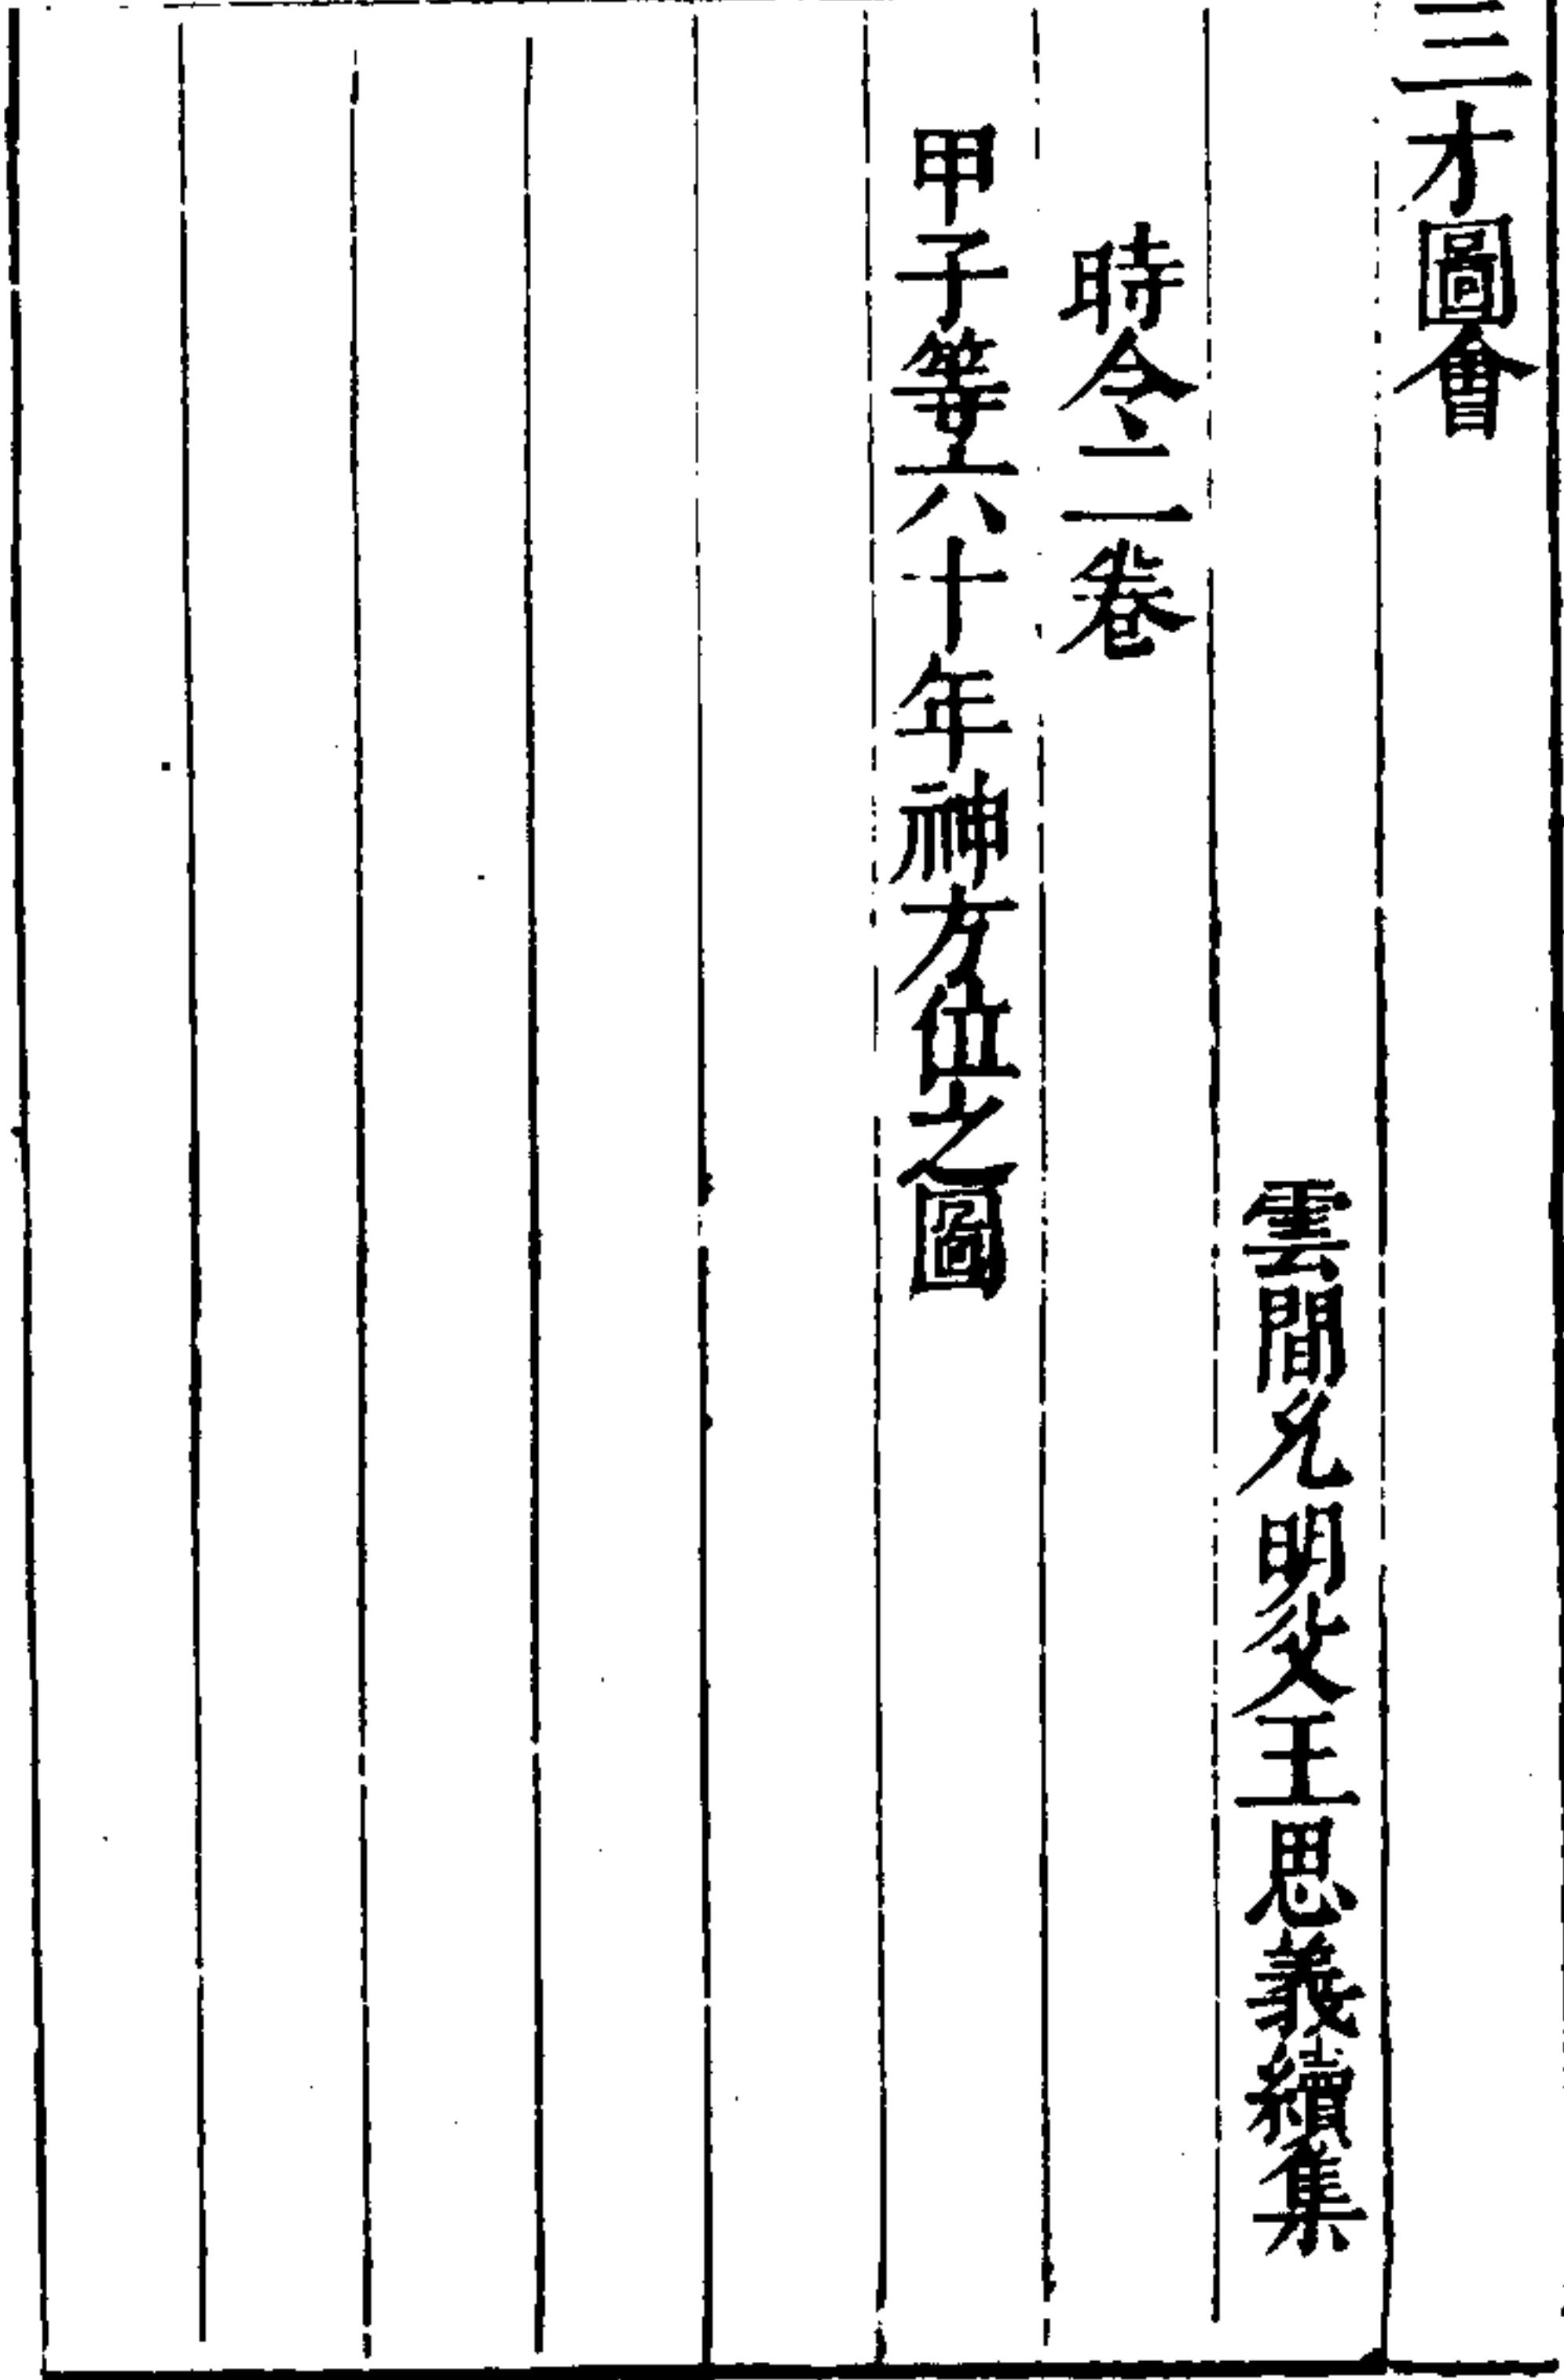 三才圖會
雲間允明父王思義續集
時令二卷
甲子等六十年神方位之圖